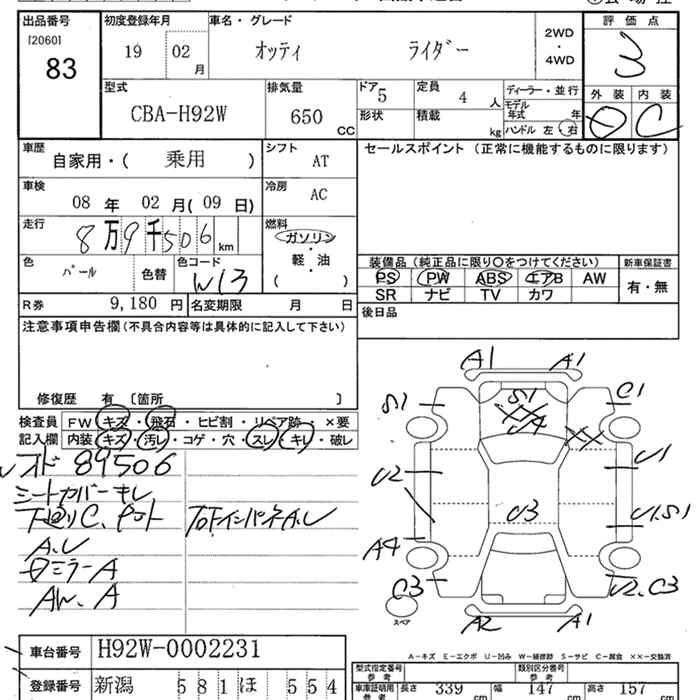 出品番号 初度登録年月 車名・グレード 評価点
[2060]
83
19 02 月 オッティ ライダー 2WD・4WD 3
型式 排気量 ドア 5 定員 4 人 ディーラー・並行 外装 内装
CBA-H92W 650 CC 形状 積載 kg モデル年式 年 D C
ハンドル 左 右
車歴 自家用・( 乗用 ) シフト AT セールスポイント (正常に機能するものに限ります)
車検 08 年 02 月( 09 日) 冷房 AC
走行 8万9千506 km 燃料 ガソリン・軽・油 ( )
色 パール 色替 色コード W13
装備品 (純正品に限り○をつけてください) 新車保証書
PS PW ABS エアB AW 有・無
SR ナビ TV カワ
R券 9,180 円 名変期限 月 日 後日品
注意事項申告欄(不具合内容等は具体的に記入して下さい)
修復歴 有 〔箇所 〕
検査員記入欄 FW キズ・飛石・ヒビ割・リペア跡・×要
内装 キズ・汚レ・コゲ・穴・スレ・キレ・破レ
89506
シートカバーキレ
A.U
ミラーA
AW.A
A1 A1
S1 S1 C1
U2 U1
U3 U1.S1
A4
C3 U2.C3
スペア A2 A1
A-キズ E-エクボ U-凹み W-補修跡 S-サビ C-腐食 ××-交換済
車台番号 H92W-0002231
登録番号 新潟 581 ほ 554
型式指定番号 参考 類別区分番号 参考
車庫証明用参考 長さ 339 cm 幅 147 cm 高さ 157 cm